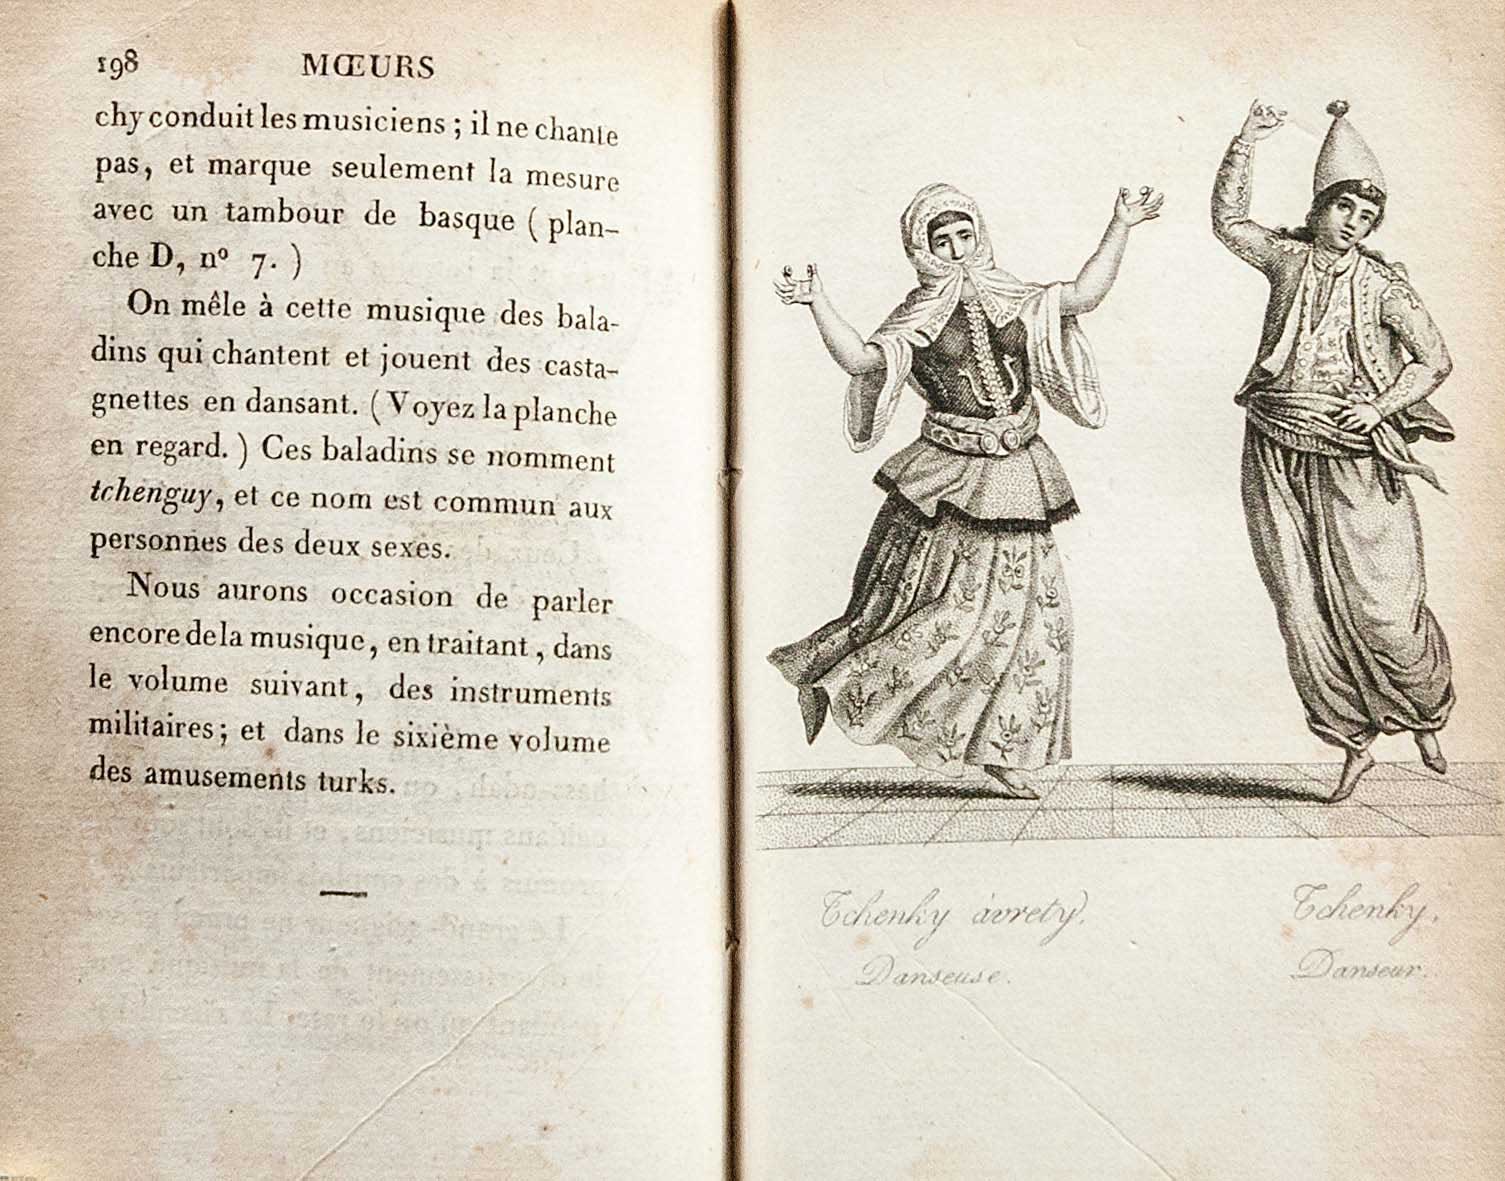 198 MŒURS
chy conduit les musiciens ; il ne chante
pas, et marque seulement la mesure
avec un tambour de basque ( plan-
che D, nº 7. )
On mêle à cette musique des bala-
dins qui chantent et jouent des casta-
gnettes en dansant. ( Voyez la planche
en regard. ) Ces baladins se nomment
tchenguy, et ce nom est commun aux
personnes des deux sexes.
Nous aurons occasion de parler
encore de la musique, en traitant, dans
le volume suivant, des instruments
militaires ; et dans le sixième volume
des amusements turks.
Tchenky àvrety.
Danseuse.
Tchenky.
Danseur.